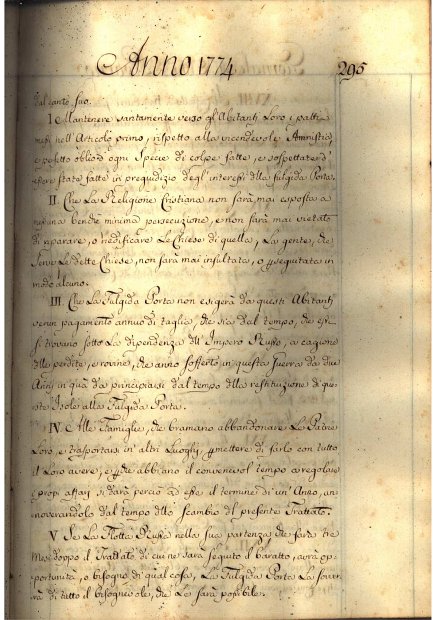 Anno 1774
295
dal canto suo.
I Mantenere santamente verso gl'Abitanti Loro i patti
messi nell'Articolo primo, rispetto alla vicendevole Amnistia,
e perfetto oblio d'ogni Specie di colpe fatte, e sospettate d'
essere state fatte in pregiudizio degl'interessi della fulgida Porta.
II. Che La Religione Cristiana non sarà mai esposta a
nessuna benchè minima persecuzione, e non sarà mai vietato
di riparare, o riedificare Le Chiese di quella, La gente, che
serve Le dette Chiese, non sarà mai insultata, o perseguitata in
modo alcuno.
III. Che La Fulgida Porta non esigerà da questi Abitanti
verun pagamento annuo di taglia, che sia dal tempo, che essi
si trovano sotto La dipendenza dell'Impero Russo, a cagione
delle perdite, e rovine, che anno sofferto in questa Guerra da due
Anni in quà da principiarsi dal tempo della restituzione di que-
ste Isole alla Fulgida Porta.
IV. Alle Famiglie, che bramano abbandonare Le Patrie
Loro, e trasportarsi in altri Luoghi permettere di farlo con tutto
il Loro avere, e perchè abbiano il convenevol tempo a regolare
i propri affari, si darà perciò ad esse il termine di un'Anno, an-
noverandolo dal tempo dello scambio del presente Trattato.
V Se La Flotta Russa nella sua partenza, che farà tre
Mesi doppo il Trattato di cui ne sarà seguito il baratto, avrà op-
portunità, o bisogno di qual cosa, La Fulgida Porta La sovver-
rà di tutto il bisognevole, che Le sarà possibile.